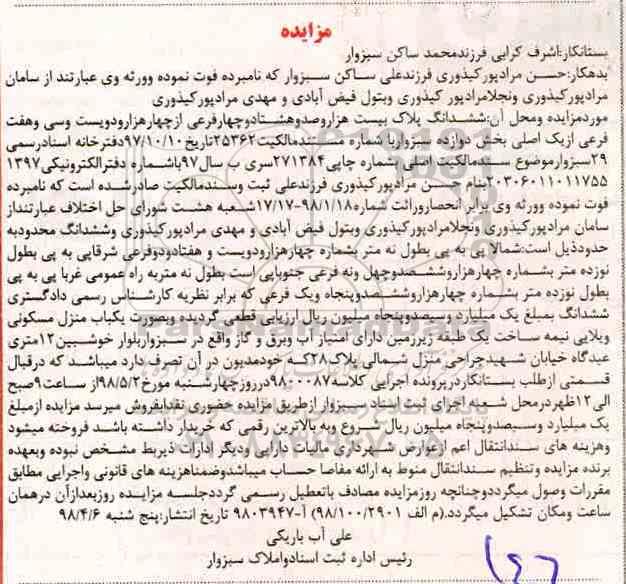 مزایده
بستانکار:اشرف کرابی فرزندمحمد ساکن سبزوار
بدهکار:حسن مرادپورکیذوری فرزندعلی ساکن سبزوار که نامبرده فوت نموده وورثه وی عبارتند از سامان
مرادپورکیذوری ونجلامرادپور کیذوری وبتول فیض آبادی و مهدی مرادپورکیذوری
موردمزایده ومحل آن:ششدانگ پلاک بیست هزاروصدوهشتادوچهارفرعی ازچهارهزارودویست وسی وهفت
فرعی ازیک اصلی بخش دوازده سبزوارباا شماره مستندمالکیت۲۵۳۶۲تاریخ۹۷/۱۰/۱۰دفترخانه اسنادرسمی
۲۹سبزوارموضوع سندمالکیت اصلی بشماره چاپی۲۷۱۳۸۴سری ب سال۹۷باشماره دفترالکترونیکی۱۳۹۷
۲۰۳۰۶۰۱۱۰۱۱۷۵۵بنام حسن مرادپورکیذوری فرزندعلی ثبت وسندمالکیت صادرشده است که نامبرده
فوت نموده وورثه وی برابر انحصاروراثت شماره۹۸/۱/۱۸-۱۷/۱۷شعبه هشت شورای حل اختلاف عبارتنداز
سامان مرادپورکیذوری ونجلامرادپورکیذوری وبتول فیض آبادی و مهدی مرادپورکیذوری وششدانگ محدودبه
حدودذیل است:شمالا پی به پی بطول نه متر بشماره چهارهزارودویست و هفتادودوفرعی شرقاپی به پی بطول
نوزده متر بشماره چهارهزاروششصدوچهل ونه فرعی جنوبابی است بطول نه متربه راه عمومی غربا پی به پی
بطول نوزده متر بشماره چهارهزاروششصدوپنجاه ویک فرعی که برابر نظریه کارشناس رسمی دادگستری
ششدانگ بمبلغ یک میلیارد وسیصدوپنجاه میلیون ریال ارزیابی قطعی گردیده وبصورت یکباب منزل مسکونی
ویلایی نیمه ساخت یک طبقه زیرزمین دارای امتیاز آب وبرق و گاز واقع در سبزواربلوار خوشبین۱۲متری
عبدگاه خیابان شهیدچراحی منزل شمالی پلاک۲۸که خودمدیون در آن تصرف دارد میباشد که درقبال
قسمتی ازطلب بستانکاردرپرونده اجرایی کلاسه۹۸۰۰۰۸۷درروزچهارشنبه مورخ۹۸/۵/۲از ساعت۹صبح
الی۱۲ظهردرمحل شعبه اجرای ثبت اسناد سبزوار ازطریق مزایده حضوری نقدابفروش میرسد مزایده ازمبلغ
یک میلیارد وسیصدوپنجاه میلیون ریال شروع وبه بالاترین رقمی که خریدار داشته باشد فروخته میشود
وهزینه های سندانتقال اعم ازعوارض شهرداری مالیات دارایی ودیگر ادارات ذیربط مشخص نبوده وبعهده
برنده مزایده وتنظیم سندانتقال منوط به ارائه مفاصا حساب میباشدوضمناهزینه های قانونی واجرایی مطابق
مقررات وصول میگرددوچنانچه روزمزایده مصادف باتعطیل رسمی گرددجلسه مزایده روزبعدازآن درهمان
ساعت ومکان تشکیل میگردد.(م الف ۹۸/۱۰۰/۲۹۰۱) آ-۹۸۰۳۹۴۷ تاریخ انتشار:پنج شنبه ۹۸/۴/۶
علی آب باریکی
رئیس اداره ثبت اسنادواملاک سبزوار